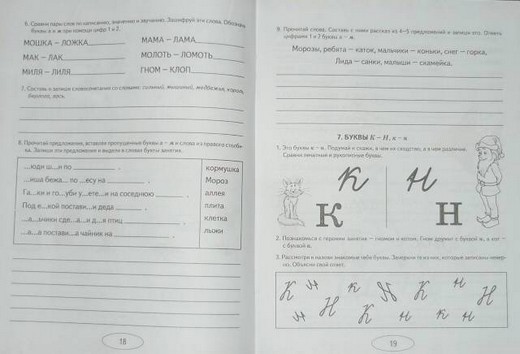 6. Сравни пары слов по написанию, значению и звучанию. Зашифруй эти слова. Обозначь
буквы л и м при помощи цифр 1 и 2.
МОШКА – ЛОЖКА
МАМА – ЛАМА
МАК – ЛАК
МОЛОТЬ – ЛОМОТЬ
МИЛЯ – ЛИЛЯ
ГНОМ – КЛОП
7. Составь и запиши словосочетания со словами:
8. Прочитай предложения, вставляя пропущенные буквы л – м и слова из правого столби-
ка. Запиши эти предложения и выдели в словах буквы занятия.
...юди ш...и по .
...иша бежа... по ...есу на .
Га...ки и го...уби у...ете...и на соседнюю .
Под е...кой поставил...и деда .
...а...ьчики сде...а...и д...я птиц .
...а...а постави...а чайник на .
кормушка
Мороз
аллея
плита
клетка
лыжи
18
9. Прочитай слова. Составь с ними рассказ из 4–5 предложений и запиши его. Отметь
цифрами 1 и 2 буквы к – н.
Морозы, ребята – каток, мальчики – коньки, снег – горка,
Лида – санки, малыши – скамейка.
7. БУКВЫ К – Н, к – н
1. Это буквы к – н. Подумай и скажи, в чем их сходство, а в чем различие.
Сравни печатные и рукописные буквы.
К Н
К Н
2. Познакомься с героями занятия – гномом и котом. Гном дружит с буквой н, а кот –
с буквой к.
3. Рассмотри и назови знакомые тебе буквы. Зачеркни те из них, которые записаны невер-
но. Объясни свой ответ.
19